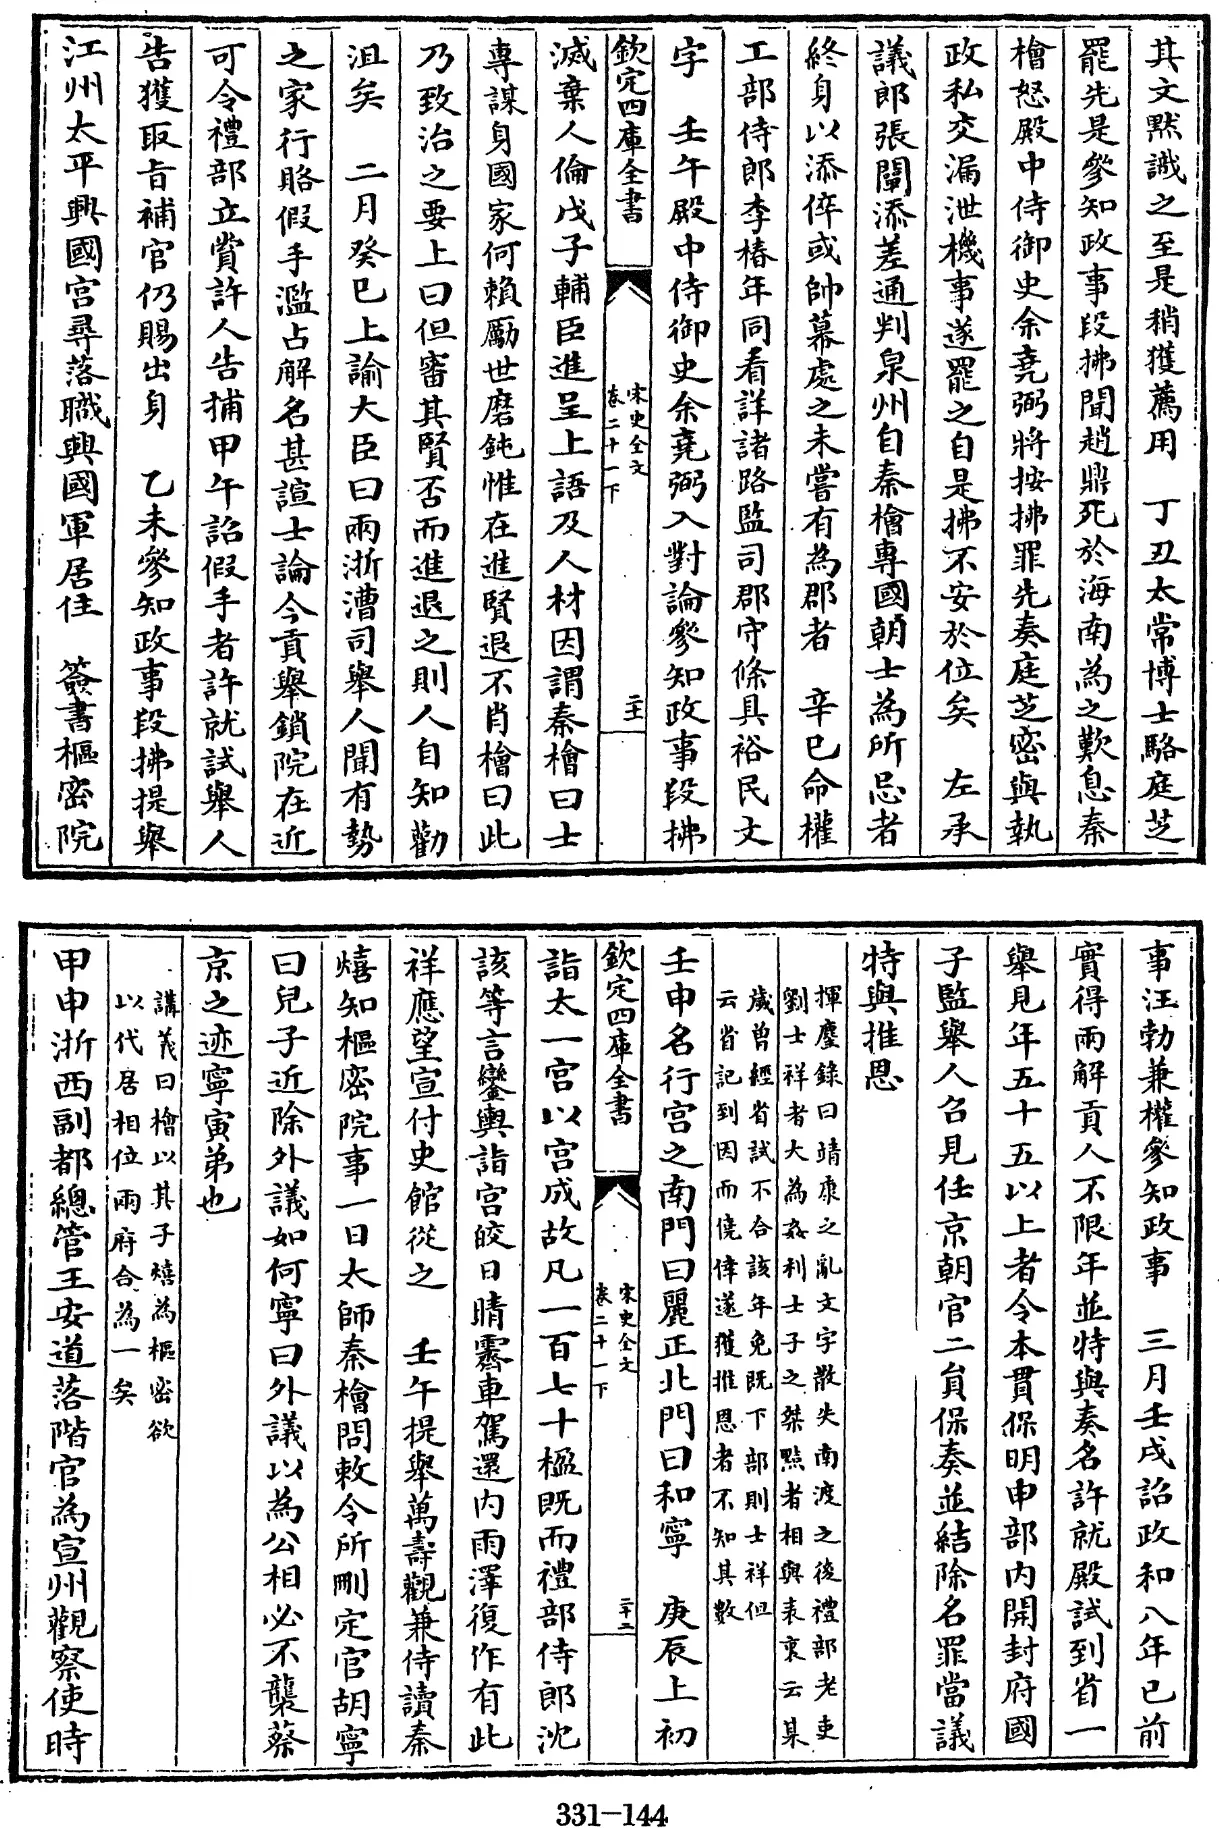 其文黙識之至是稍獲薦用　丁丑太常博士駱庭芝
罷先是參知政事段拂聞趙鼎死於海南為之歎息秦
檜怒殿中侍御史余堯弼將按拂罪先奏庭芝密與執
政私交漏泄機事遂罷之自是拂不安於位矣　左承
議郎張闡添差通判泉州自秦檜專國朝士為所忌者
終身以添倅或帥幕處之未嘗有為郡者　辛巳命權
工部侍郎李椿年同看詳諸路監司郡守條具裕民文
字　壬午殿中侍御史余堯弼入對論參知政事段拂
欽定四庫全書　宋史全文卷二十一下　二十一
滅棄人倫戊子輔臣進呈上語及人材因謂秦檜曰士
專謀身國家何賴勵世磨鈍惟在進賢退不肖檜曰此
乃致治之要上曰但審其賢否而進退之則人自知勸
沮矣　二月癸巳上諭大臣曰兩浙漕司舉人聞有勢
之家行賂假手濫占解名甚諠士論今貢舉鎖院在近
可令禮部立賞許人告捕甲午詔假手者許就試舉人
告獲取旨補官仍賜出身　乙未參知政事段拂提舉
江州太平興國宮尋落職興國軍居住　簽書樞密院
事汪勃兼權參知政事　三月壬戌詔政和八年已前
實得兩解貢人不限年並特與奏名許就殿試到省一
舉見年五十五以上者令本貫保明申部內開封府國
子監舉人召見任京朝官二員保奏並結除名罪當議
特與推恩
揮麈錄曰靖康之亂文字散失南渡之後禮部老吏
劉士祥者大為姦利士子之桀黠者相與表裏云某
歲曾經省試不合該年免旣下部則士祥但
云省記到因而僥倖遂獲推恩者不知其數
壬申名行宮之南門曰麗正北門曰和寧　庚辰上初
欽定四庫全書　宋史全文卷二十一下　二十二
詣太一宮以宮成故凡一百七十楹旣而禮部侍郎沈
該等言鑾輿詣宮皎日晴霽車駕還內雨澤復作有此
祥應望宣付史館從之　壬午提舉萬壽觀兼侍讀秦
熺知樞密院事一日太師秦檜問敕令所刪定官胡寧
曰兒子近除外議如何寧曰外議以為公相必不襲蔡
京之迹寧寅弟也
講義曰檜以其子熺為樞密欲
以代居相位兩府合為一矣
甲申浙西副都總管王安道落階官為宣州觀察使時
331-144